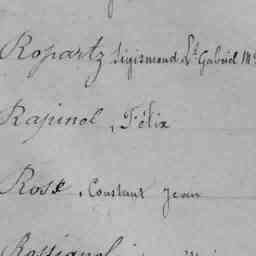 Ropartz Sigismond St Gabriel M
Rapinel, Félix
Rose, Constant Jean
Rossignol